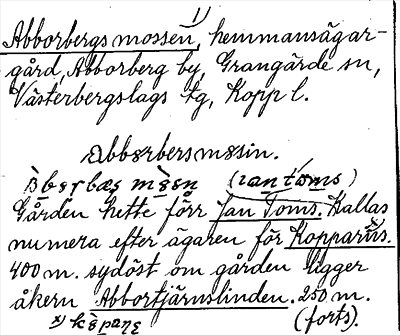 1)
Abborbergsmossen, hemmansägar-
gård, Abborberg by, Grangärde sn,
Västerbergslags tg, Kopp l.
Abborbersmosin.
Gården hette förr Jan Toms. Kallas
numera efter ägaren för Kopparns.
400 m. sydöst om gården ligger
åkern Abbortjärnslinden. 250 m.
(forts).